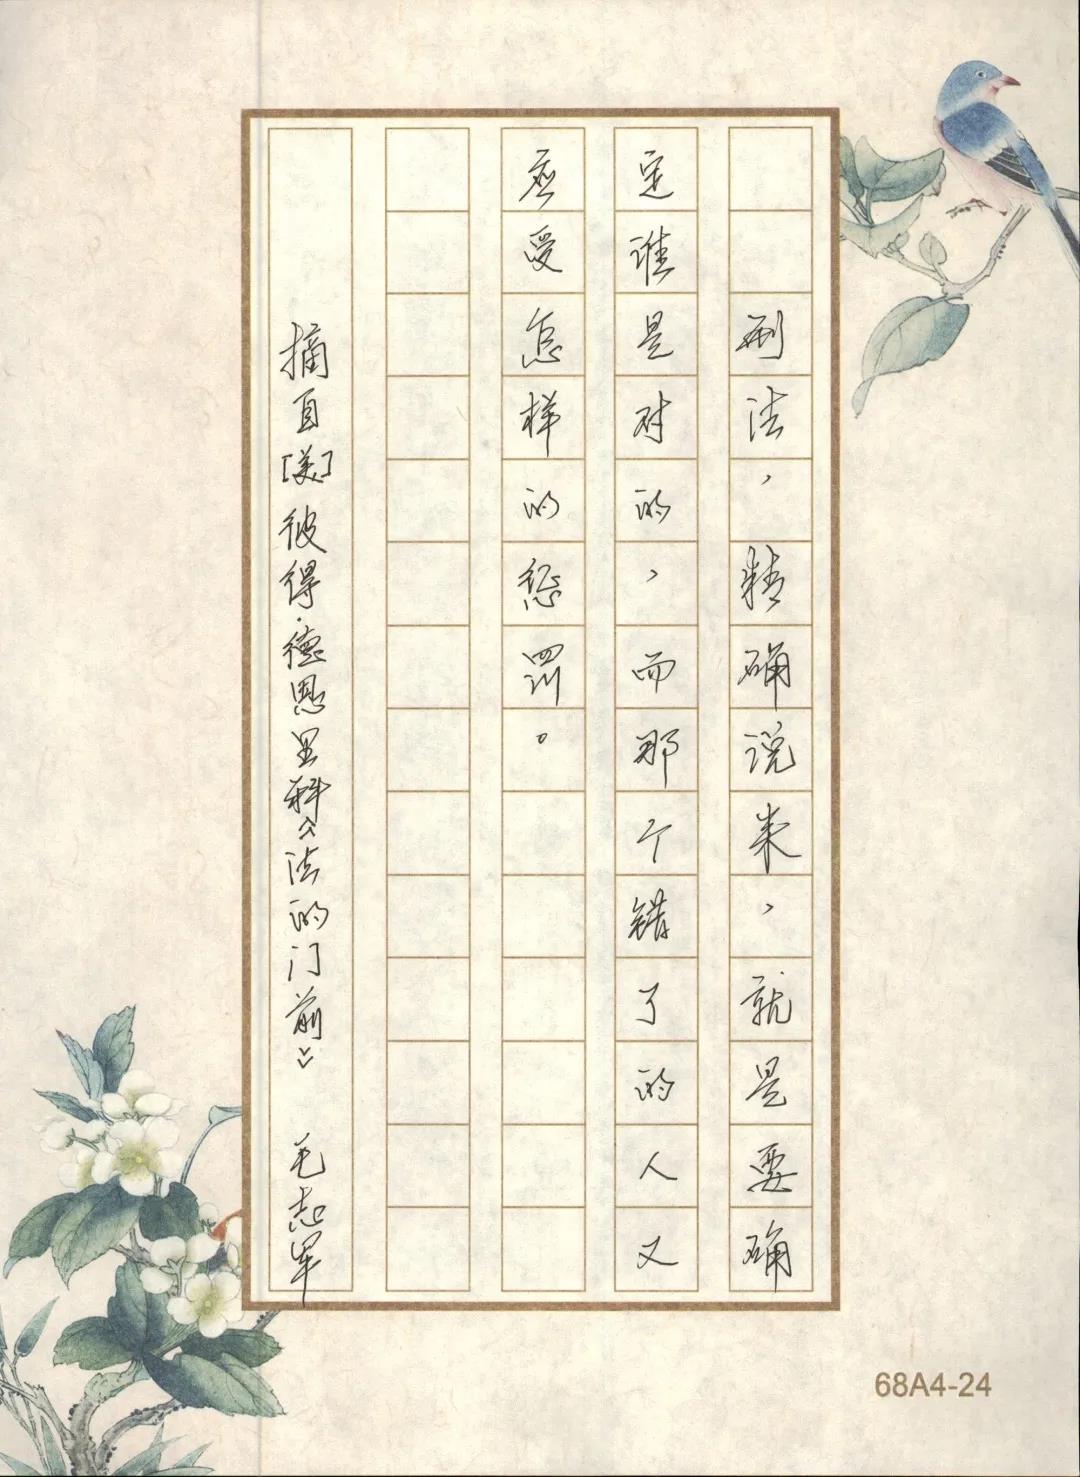 刑法，精确说来，就是要确
定谁是对的，而那个错了的人又
应受怎样的惩罚。
摘自[美]彼得·德恩里科《法的门前》 毛志军
68A4-24